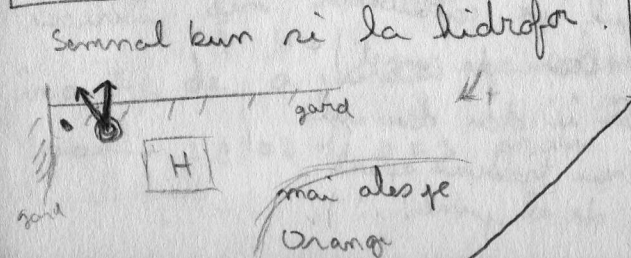 Semnal bun si la hidrofor.
gard
H
gard
mai ales pe
Orange